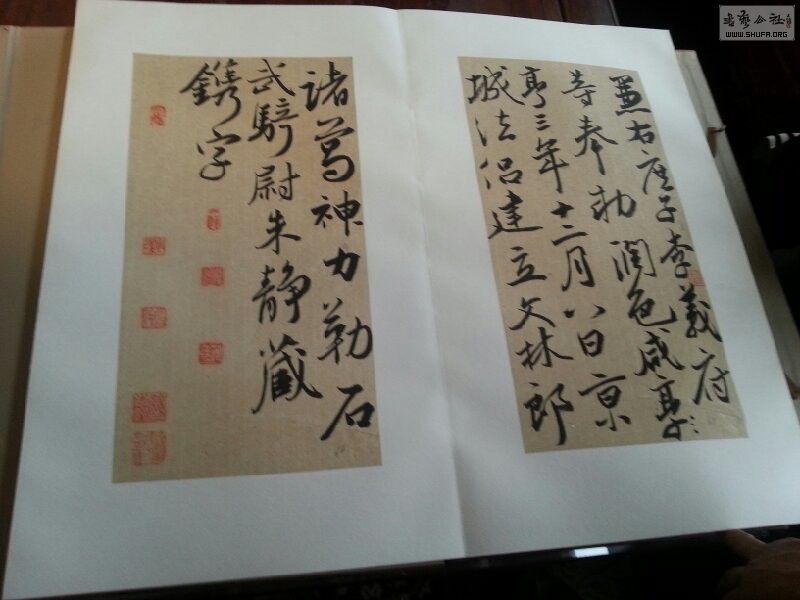 兼右庶子李義府
等奉勅潤色咸亨
亨三年十二月八日京
城法侶建立文林郎
諸葛神力勒石
武騎尉朱静藏
鐫字
書藝公社
WWW.SHUFA.ORG